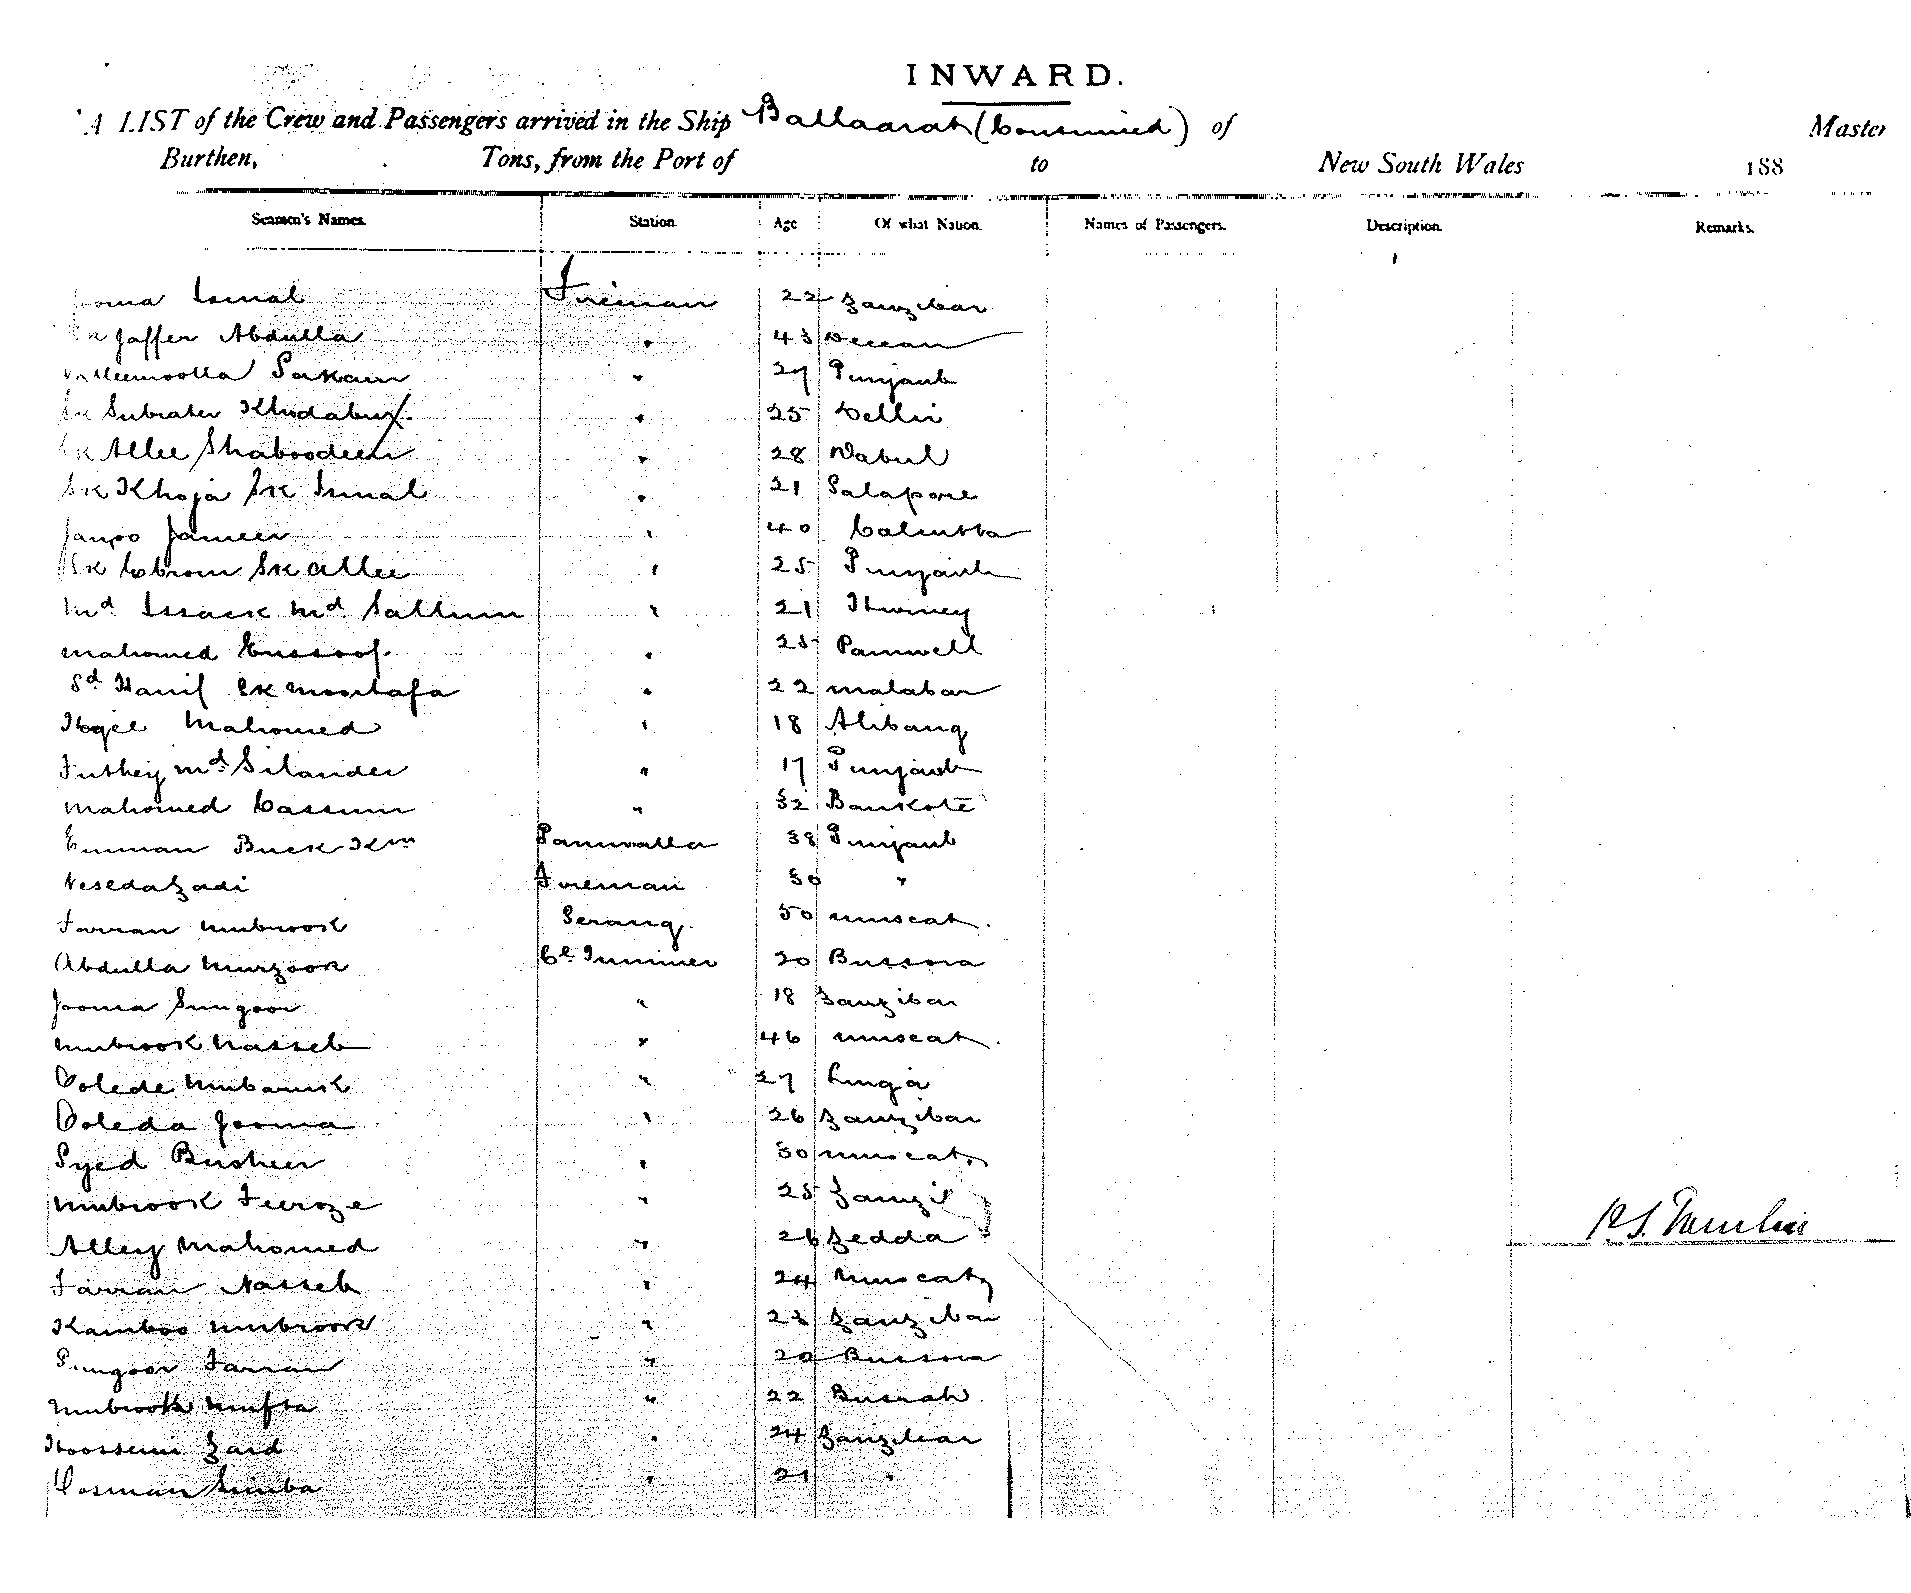 INWARD.
A LIST of the Crew and Passengers arrived in the Ship Ballaarat (Continued) of Master
Burthen, Tons, from the Port of to New South Wales 188
Seamen's Names. Station. Age Of what Nation. Names of Passengers. Description. Remarks.
Jooma Ismal Fireman 22 Zanzibar
Sk Jaffer Abdulla " 43 Deccan
Sakam " 27 Punjaub
Sk Khodabux " 25 Delhi
Sk Allee Shaboodeen " 28 Dabul
Sk Khoja Sk Ismal " 21 Salapore
Jameer " 40 Calcutta
Sk Ebrom Sk Allee " 25 Punjaub
Md Issack Md Sallum " 21
Mahomed Eussoof " 25 Panwell
Sd Hanif Sk Moostafa " 22 Malabar
Mahomed " 18 Alibaug
Futhey Md Silander " 17 Punjaub
Mahomed Cassum " 32 Bankote
Emman Buck Kn Paniwalla 38 Punjaub
Fireman 30 "
Farran Mubrook Serang 50 Muscat.
Abdulla Murzook Cl Trimmer 20 Bussora
Jooma Sungoor " 18 Zanzibar
Mubrook Nasseb " 46 Muscat.
Oolede Mubarick " 27 Linga
Ooleda Jooma " 26 Zanzibar
Syed Busheer " 30 Muscat
Mubrook Feroze " 25 Zanzi
Alley Mahomed " 26 Zedda
Farran Nasseb " 24 Muscat
Kamboo Mubrook " 23 Zanzibar
Sungoor Farran " 20 Bussora
Mubrook Mufta " 22 Busrah
Hoossein Zaid " 24 Zanzibar
Oosman Simba " 21 "